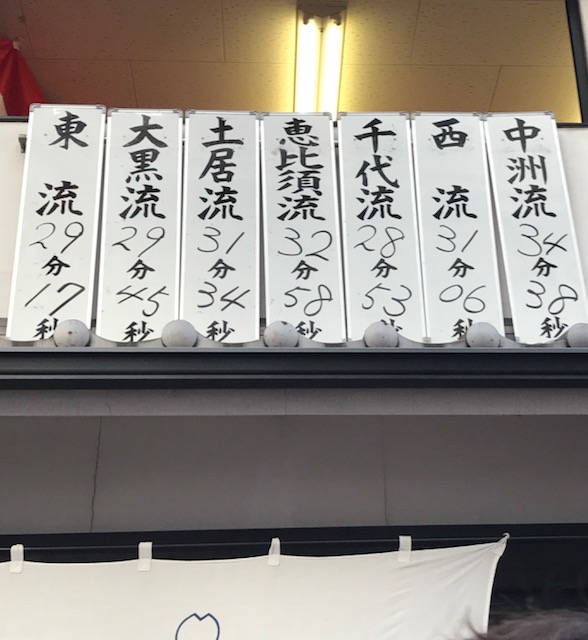 東流29分17秒
大黒流29分45秒
土居流31分34秒
恵比須流32分58秒
千代流28分53秒
西流31分06秒
中洲流34分38秒